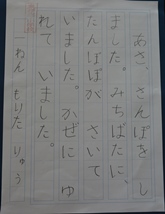 あさ、さんぽを し
ました。みちばたに、
たんぽぽが さいて
いました。かぜに ゆ
れて いました。
一ねん もりた りゅう